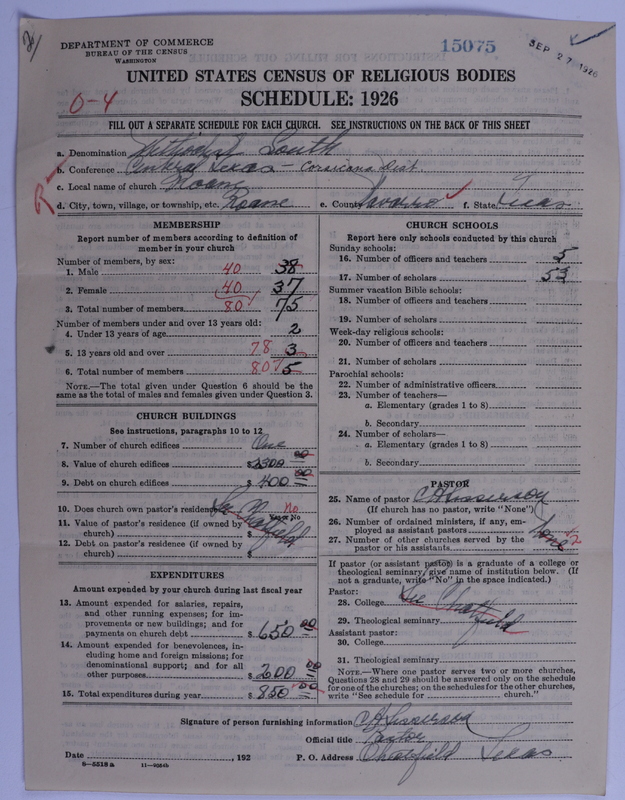 DEPARTMENT OF COMMERCE
BUREAU OF THE CENSUS
WASHINGTON
15075
SEP 27 1926
UNITED STATES CENSUS OF RELIGIOUS BODIES
SCHEDULE: 1926
0-4
FILL OUT A SEPARATE SCHEDULE FOR EACH CHURCH. SEE INSTRUCTIONS ON THE BACK OF THIS SHEET
a. Denomination Methodist South
b. Conference Central Texas - Corsicana Dist.
c. Local name of church Roane
R
d. City, town, village, or township, etc. Roane e. County Navarro f. State Texas
MEMBERSHIP
Report number of members according to definition of
member in your church
Number of members, by sex:
1. Male 40 38
2. Female 40 37
3. Total number of members 80 75
Number of members under and over 13 years old:
4. Under 13 years of age 2
5. 13 years old and over 78 3
6. Total number of members 80 75
NOTE.—The total given under Question 6 should be the
same as the total of males and females given under Question 3.
CHURCH BUILDINGS
See instructions, paragraphs 10 to 12
7. Number of church edifices One
8. Value of church edifices $ 2500 00
9. Debt on church edifices $ 400 00
10. Does church own pastor's residence? No
Yes or No
See Chatfield
11. Value of pastor's residence (if owned by
church) $
12. Debt on pastor's residence (if owned by
church) $
EXPENDITURES
Amount expended by your church during last fiscal year
13. Amount expended for salaries, repairs,
and other running expenses; for im-
provements or new buildings; and for
payments on church debt $ 650 00
14. Amount expended for benevolences, in-
cluding home and foreign missions; for
denominational support; and for all
other purposes $ 200 00
15. Total expenditures during year $ 850 00
CHURCH SCHOOLS
Report here only schools conducted by this church
Sunday schools:
16. Number of officers and teachers 5
17. Number of scholars 53
Summer vacation Bible schools:
18. Number of officers and teachers
19. Number of scholars
Week-day religious schools:
20. Number of officers and teachers
21. Number of scholars
Parochial schools:
22. Number of administrative officers
23. Number of teachers—
a. Elementary (grades 1 to 8)
b. Secondary
24. Number of scholars—
a. Elementary (grades 1 to 8)
b. Secondary
PASTOR
25. Name of pastor
(If church has no pastor, write "None")
26. Number of ordained ministers, if any, em-
ployed as assistant pastors None
27. Number of other churches served by the
pastor or his assistants 2
If pastor (or assistant pastor) is a graduate of a college or
theological seminary, give name of institution below. (If
not a graduate, write "No" in the space indicated.)
Pastor:
28. College See Chatfield
29. Theological seminary
Assistant pastor:
30. College
31. Theological seminary
NOTE.—Where one pastor serves two or more churches,
Questions 28 and 29 should be answered only on the schedule
for one of the churches; on the schedules for the other churches,
write "See schedule for church."
Signature of person furnishing information
Official title Pastor
Date , 192 P. O. Address Chatfield Texas
8-5518 a 11-9064b